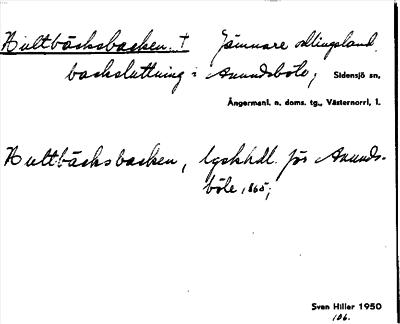 Hultbäcksbacken. † Jämnare odlingsland,
backsluttning i Anundsböle, Sidensjö sn,
Ångermanl. n. doms. tg., Västernorrl. l.
Hultbäcksbacken, lgskhdl. för Anunds-
böle, 1865;
Sven Hiller 1950
106.